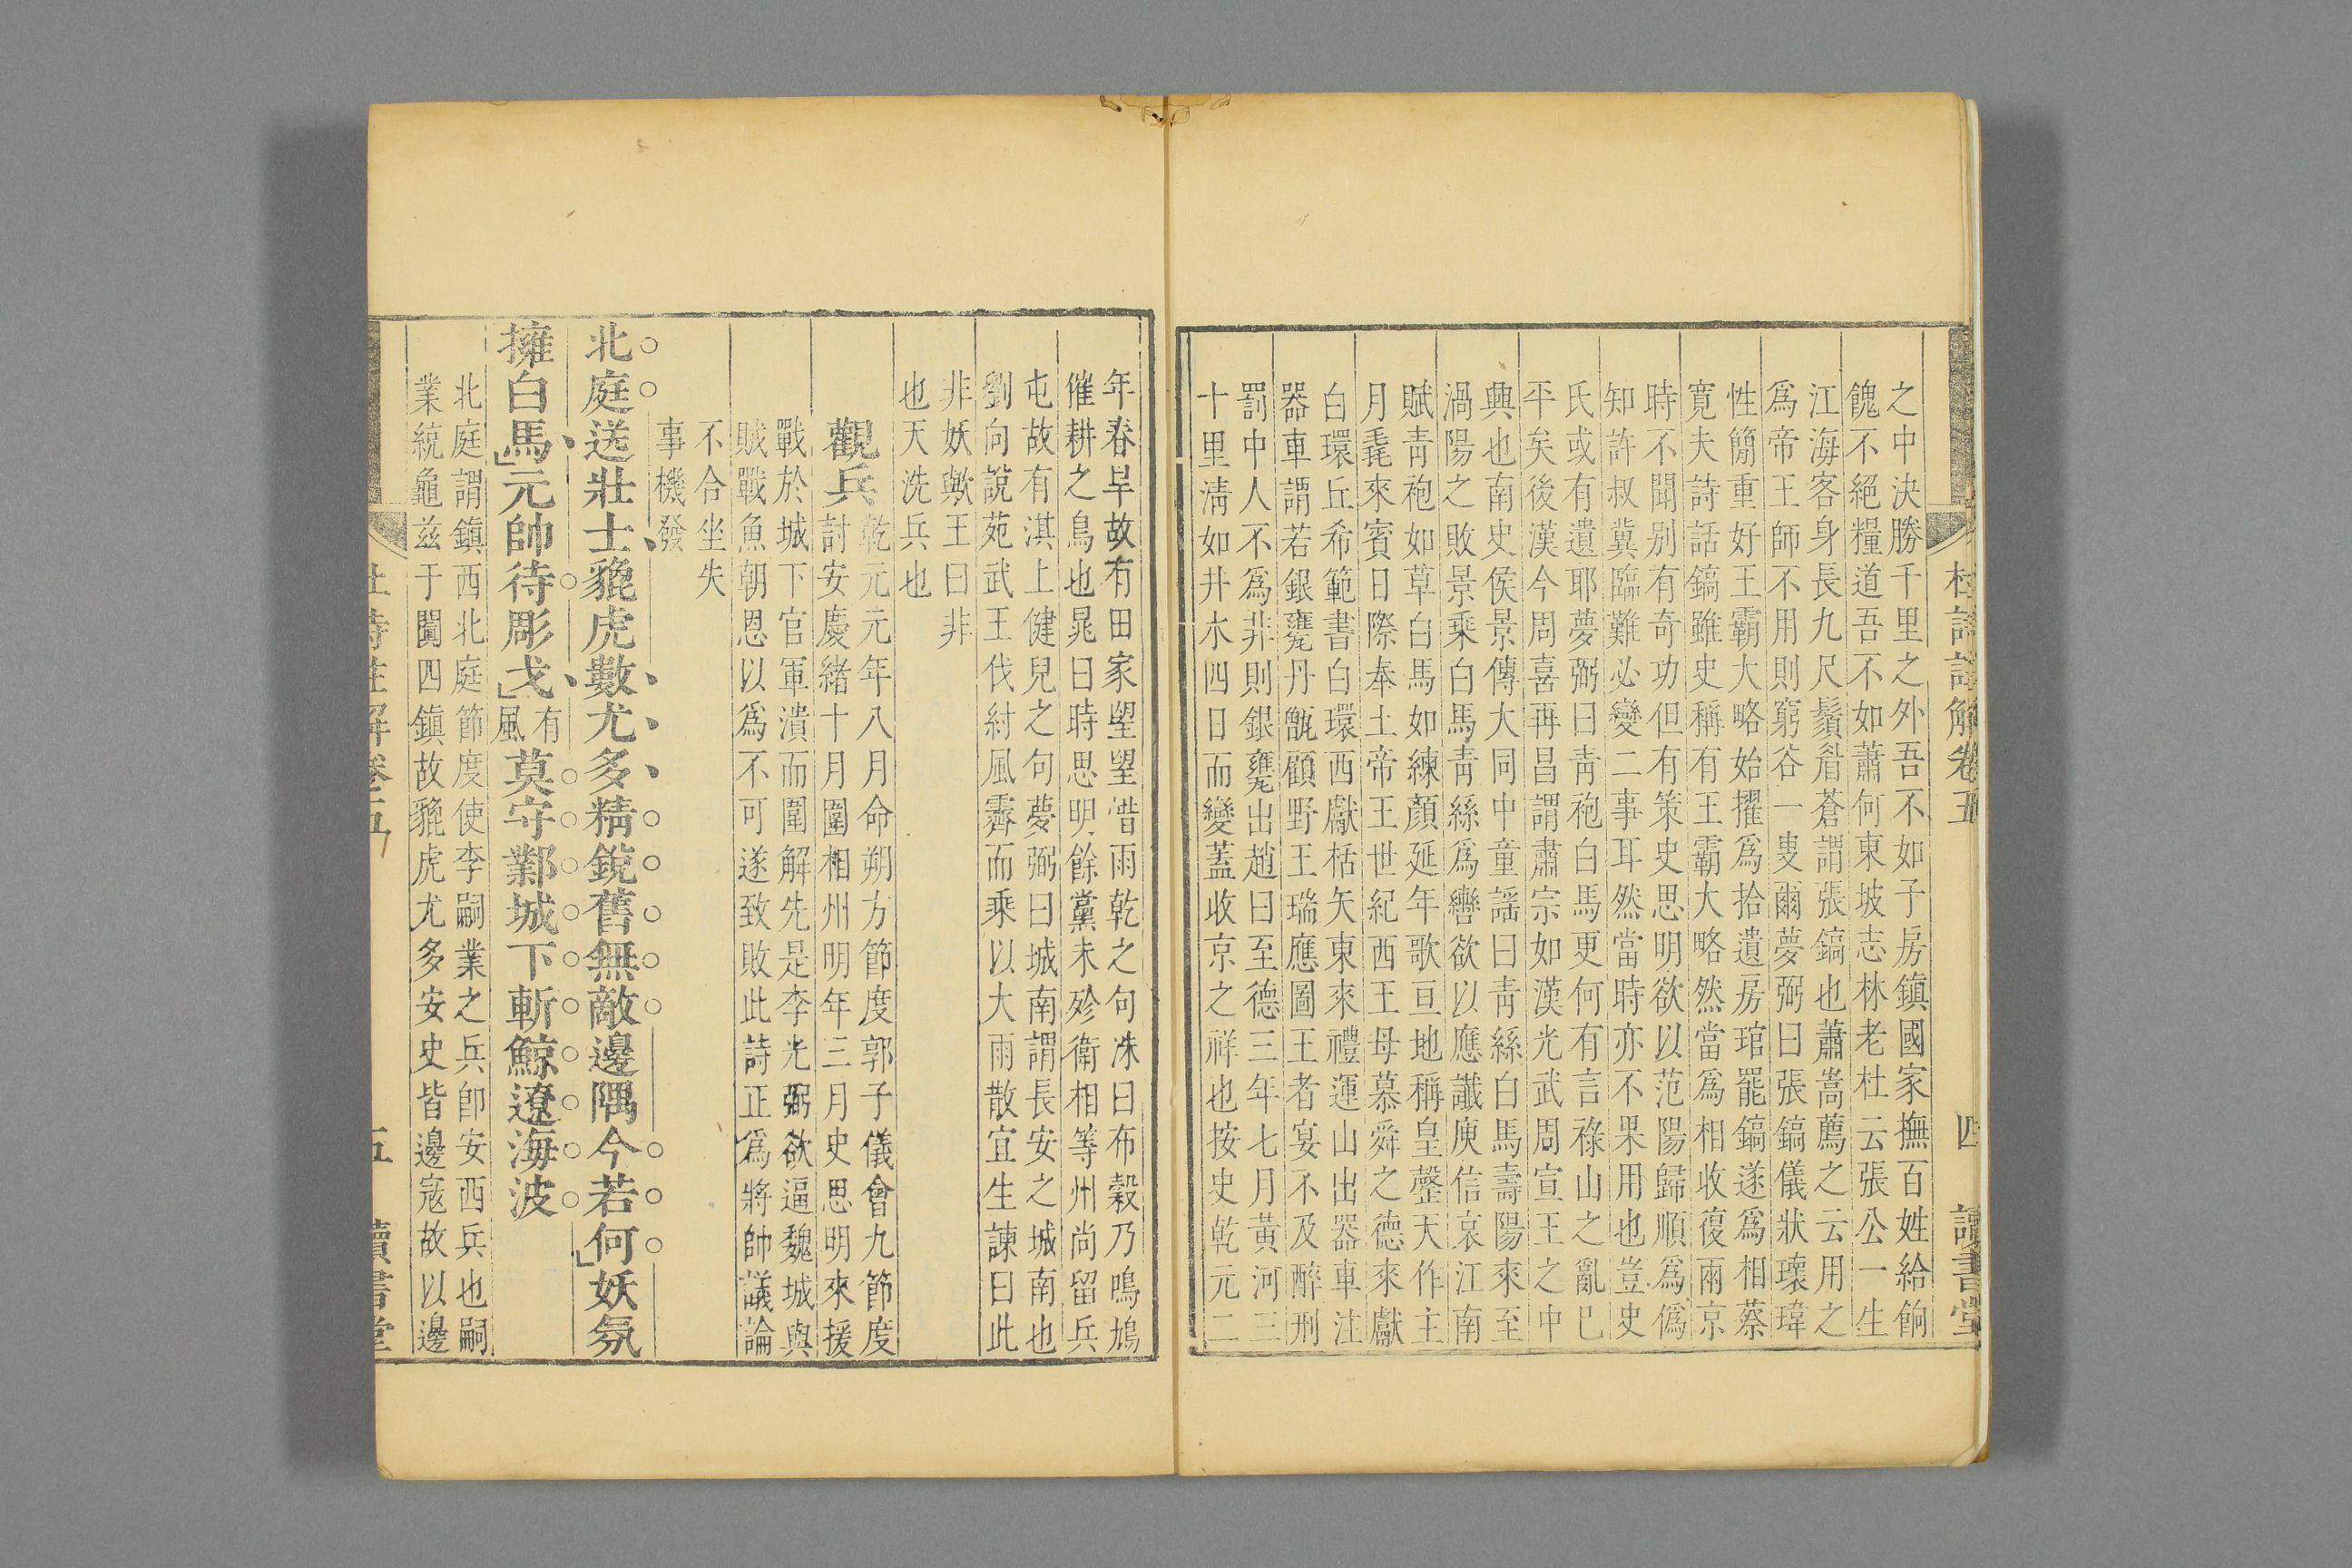 杜詩註解卷五 四 讀書堂
之中決勝千里之外吾不如子房鎮國家撫百姓給餉
餽不絕糧道吾不如蕭何東坡志林老杜云張公一生
江海客身長九尺鬚眉蒼謂張鎬也蕭嵩薦之云用之
爲帝王師不用則窮谷一叟爾夢弼曰張鎬儀狀瓌瑋
性簡重好王霸大略始擢爲拾遺房琯罷鎬遂爲相蔡
寬夫詩話鎬雖史稱有王霸大略然當爲相收復兩京
時不聞別有奇功但有策史思明欲以范陽歸順爲僞
知許叔冀臨難必變二事耳然當時亦不果用也豈史
氏或有遺耶夢弼曰青袍白馬更何有言祿山之亂已
平矣後漢今周喜再昌謂肅宗如漢光武周宣王之中
興也南史侯景傳大同中童謠曰青絲白馬壽陽來至
渦陽之敗景乘白馬青絲爲轡欲以應讖庾信哀江南
賦青袍如草白馬如練顏延年歌亘地稱皇罄天作主
月毳來賓日際奉土帝王世紀西王母慕舜之德來獻
白環丘希範書白環西獻楛矢東來禮運山出器車注
器車謂若銀甕丹甑顧野王瑞應圖王者宴不及醉刑
罰中人不爲非則銀甕出趙曰至德三年七月黃河三
十里清如井水四日而變蓋收京之祥也按史乾元二
年春旱故有田家望望惜雨乾之句洙曰布穀乃鳴鳩
催耕之鳥也晁曰時思明餘黨未殄衛相等州尚留兵
屯故有淇上健兒之句夢弼曰城南謂長安之城南也
劉向說苑武王伐紂風霽而乘以大雨散宜生諫曰此
非妖歟王曰非
也天洗兵也
觀兵
乾元元年八月命朔方節度郭子儀會九節度
討安慶緒十月圍相州明年三月史思明來援
戰於城下官軍潰而圍解先是李光弼欲逼魏城與
賊戰魚朝恩以爲不可遂致敗此詩正爲將帥議論
不合坐失
事機發
北庭送壯士貔虎數尤多精銳舊無敵邊隅今若何妖氛
擁白馬元帥待彫戈有風莫守鄴城下斬鯨遼海波
北庭謂鎮西北庭節度使李嗣業之兵卽安西兵也嗣
業統龜玆于闐四鎮故貔虎尤多安史皆邊寇故以邊
杜詩註解卷五 五 讀書堂